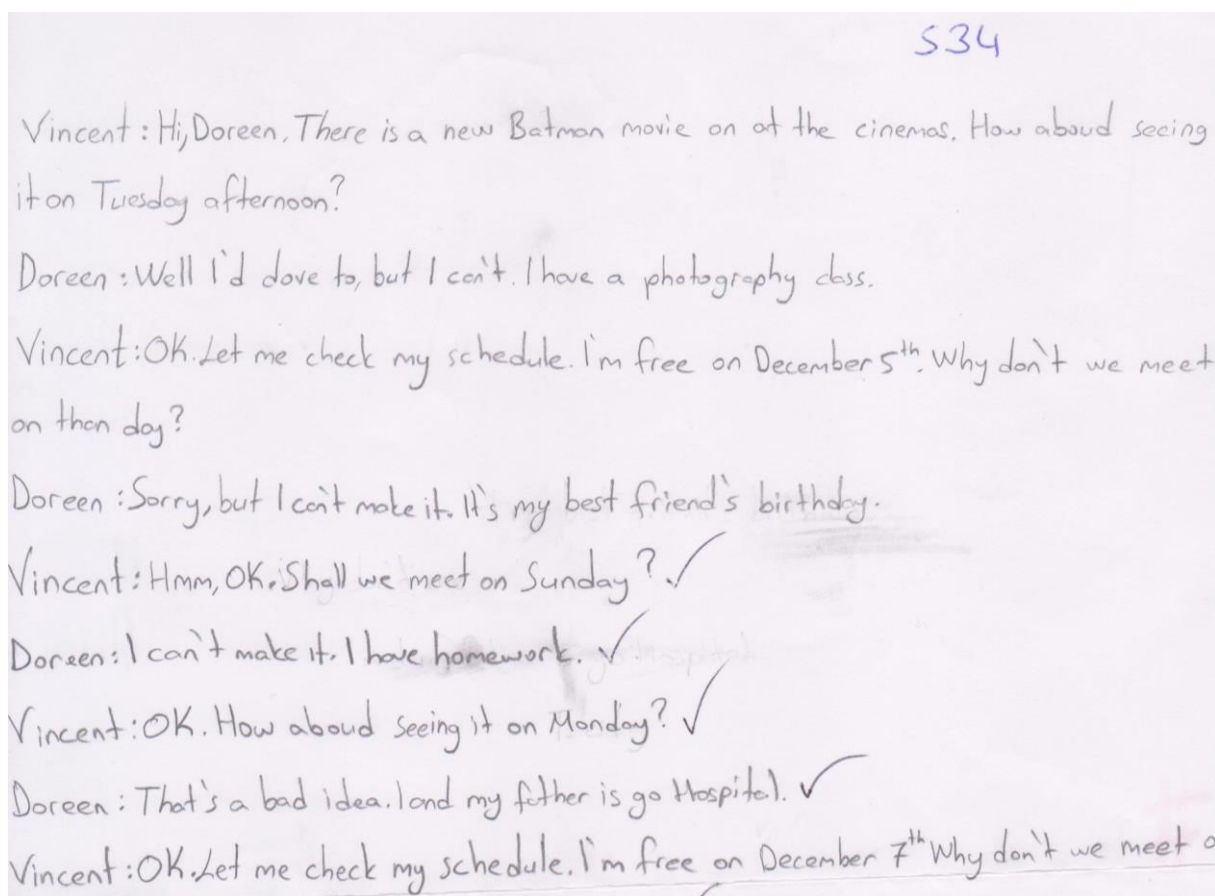 S34
Vincent : Hi, Doreen. There is a new Batman movie on at the cinemas. How aboud seeing
it on Tuesday afternoon?
Doreen : Well I'd dove to, but I can't. I have a photography class.
Vincent : OK. Let me check my schedule. I'm free on December 5th. Why don't we meet
on than day?
Doreen : Sorry, but I can't make it. It's my best friend's birthday.
Vincent : Hmm, OK. Shall we meet on Sunday? ✓
Doreen : I can't make it. I have homework. ✓
Vincent : OK. How aboud seeing it on Monday? ✓
Doreen : That's a bad idea. I and my father is go Hospital. ✓
Vincent : OK. Let me check my schedule. I'm free on December 7th Why don't we meet